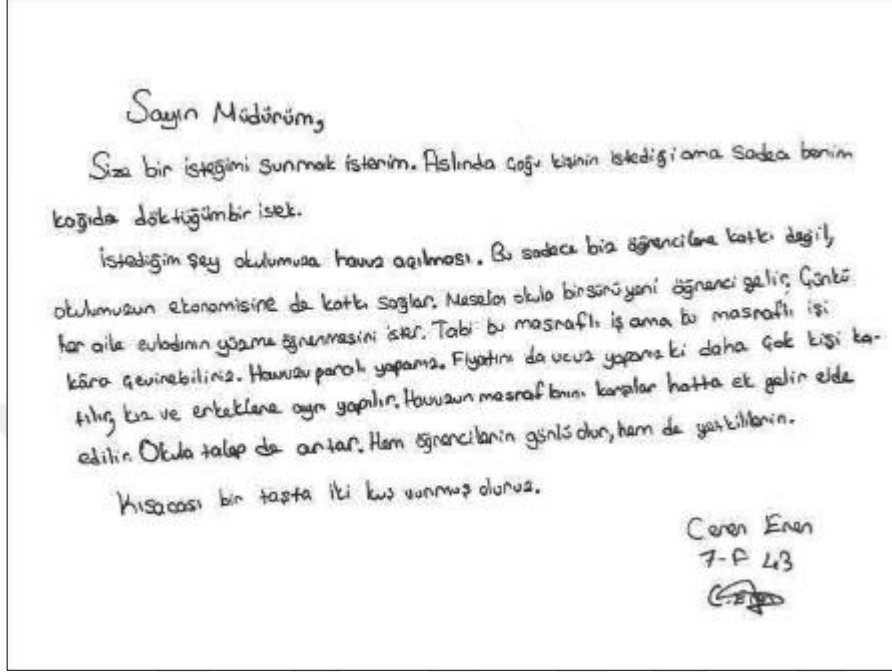 Sayın Müdürüm,
Size bir isteğimi sunmak isterim. Aslında çoğu kişinin istediği ama sadece benim
kağıda döktüğüm bir istek.
İstediğim şey okulumuza havuz açılması. Bu sadece biz öğrencilere katkı değil,
okulumuzun ekonomisine de katkı sağlar. Mesela okula bir sürü yeni öğrenci gelir. Çünkü
her aile evladının yüzme öğrenmesini ister. Tabi bu masraflı iş ama bu masraflı işi
kâra çevirebiliriz. Havuzu paralı yaparız. Fiyatını da ucuz yaparız ki daha çok kişi ka-
tılır, kız ve erkeklere ayrı yapılır. Havuzun masraflarını karşılar hatta ek gelir elde
edilir. Okula talep de artar. Hem öğrencilerin gönlü olur, hem de yetkililerin.
Kısacası bir taşta iki kuş vurmuş oluruz.
Ceren Eren
7-F 43
C.Eren